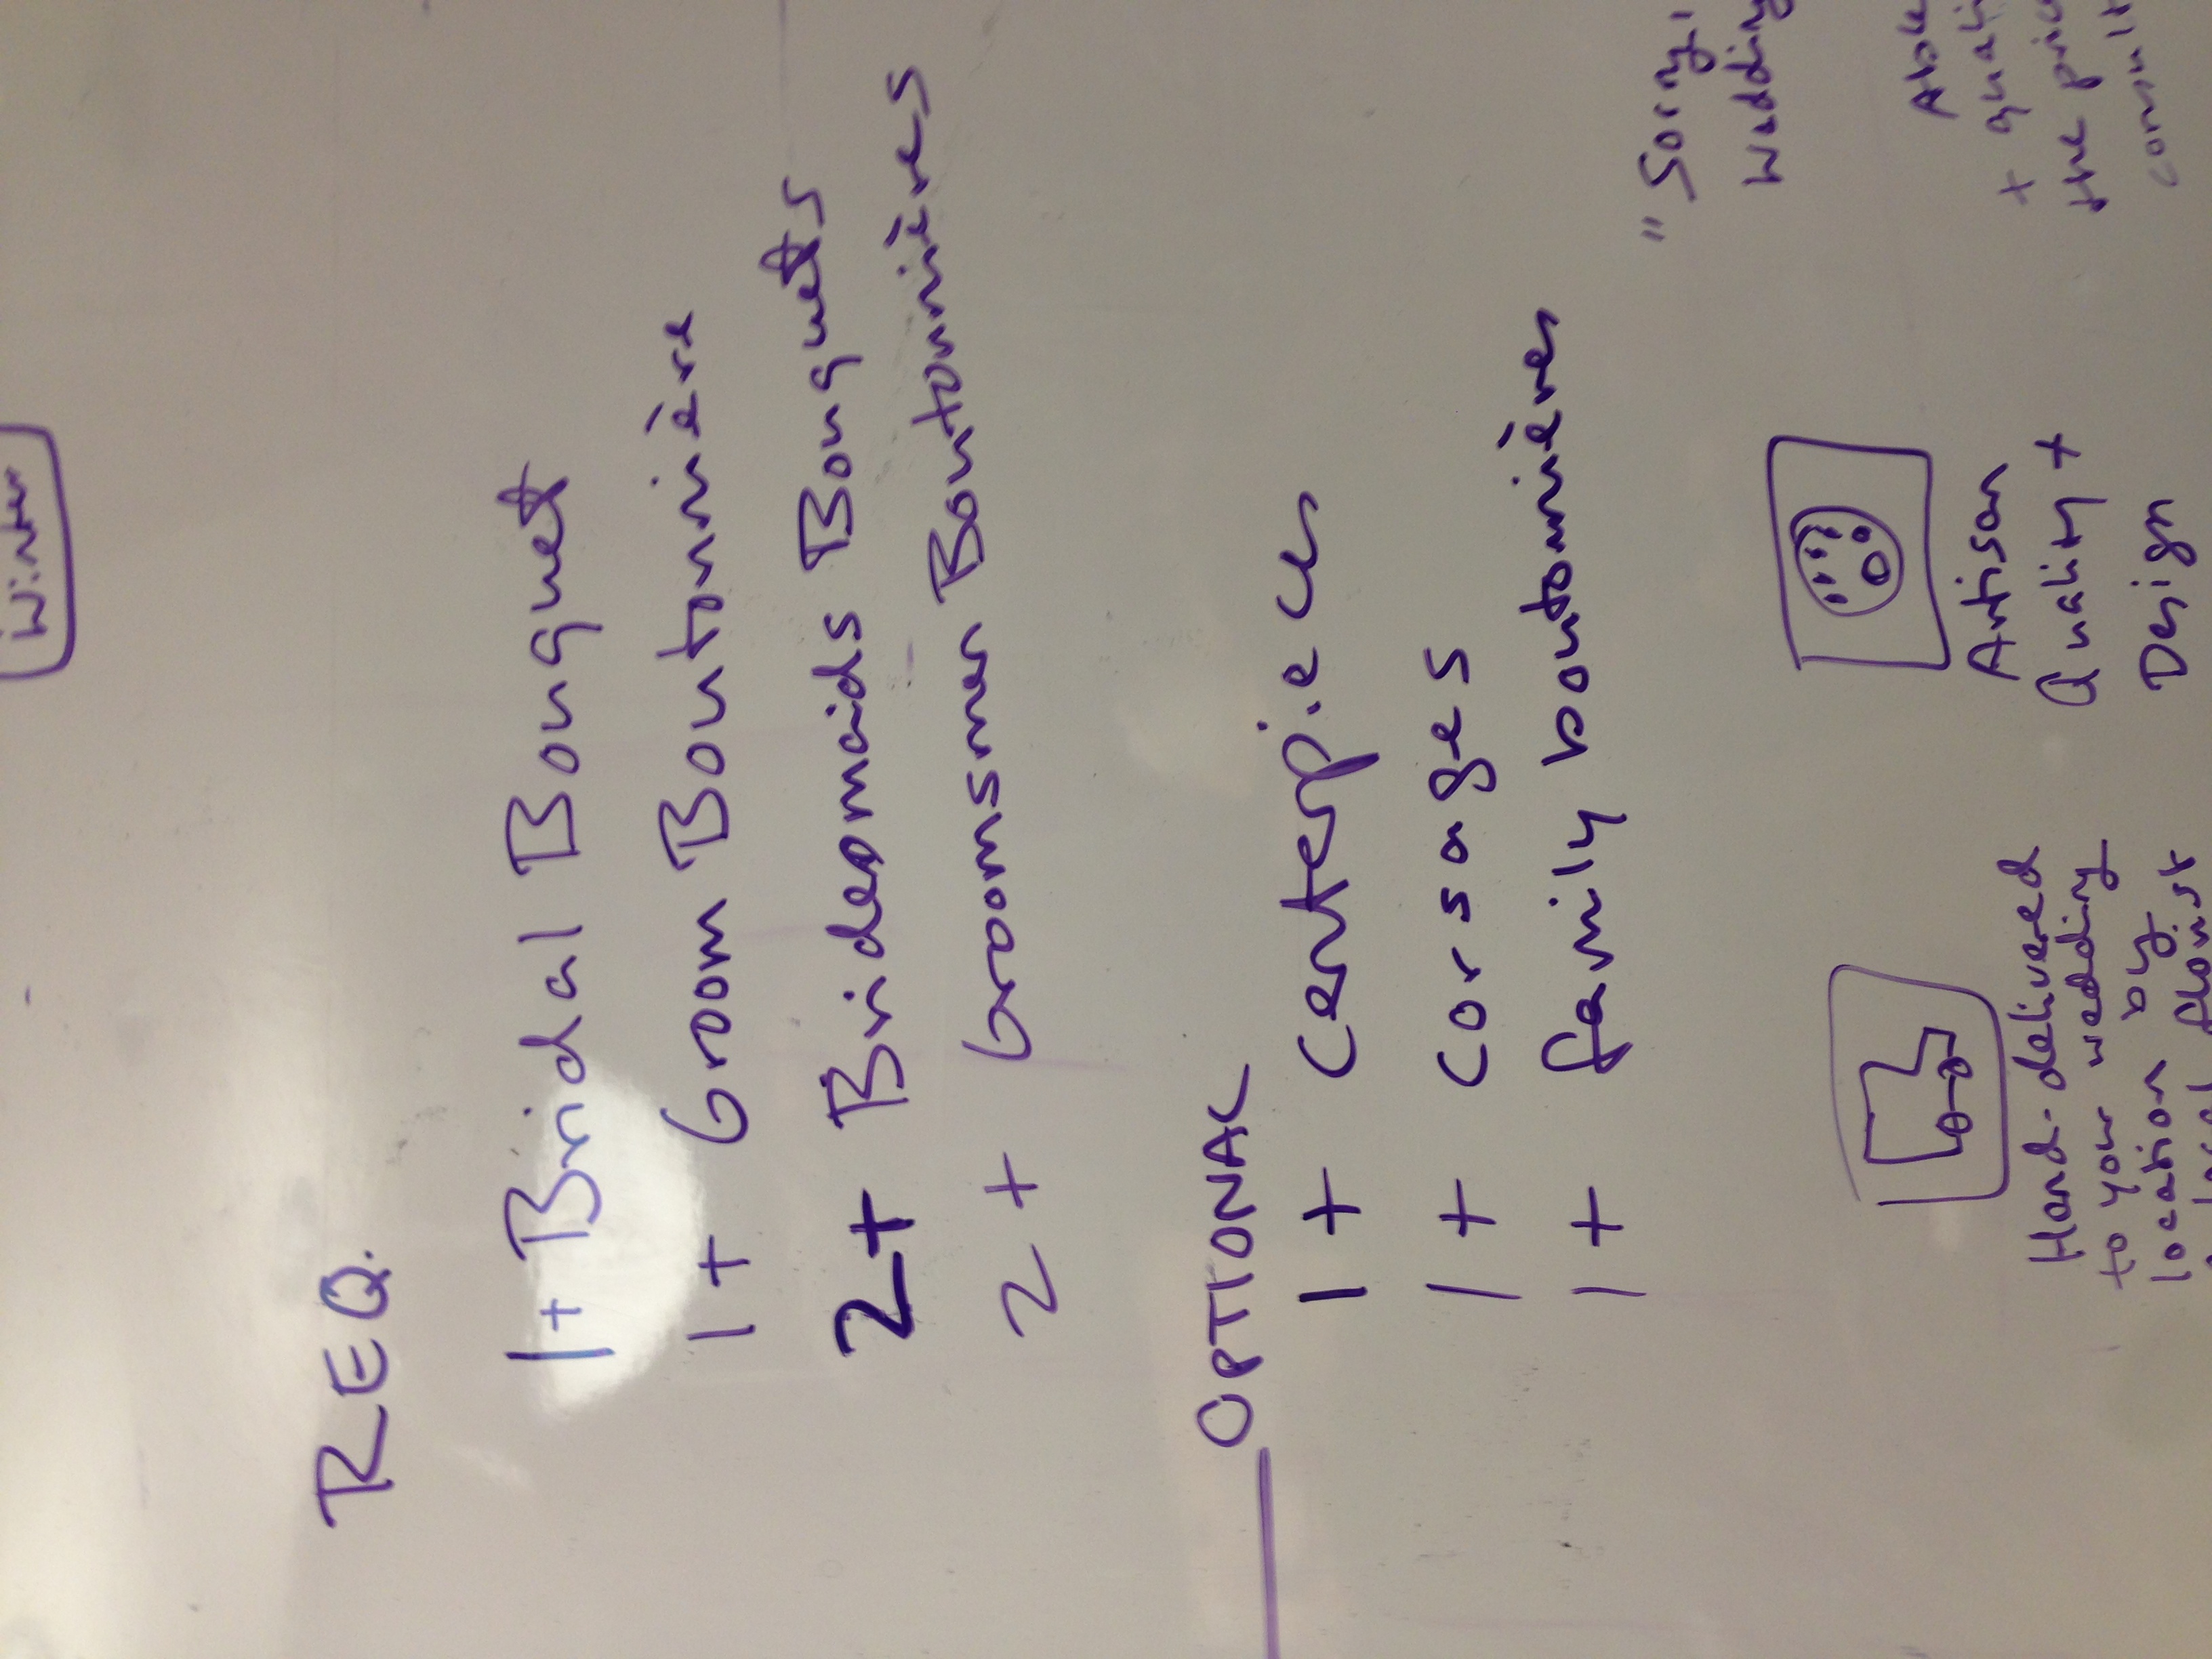 Winter
REQ.
1+ Bridal Bouquet
1+ Groom Boutonnière
2+ Bridesmaids Bouquets
2+ Groomsmen Boutonnières
OPTIONAL
1+ centerpieces
1+ corsages
1+ family boutonnières
"Sorry,
Wedding
Hand-delivered
to your wedding
location by
local florist
Artisan
Quality +
Design
+
the